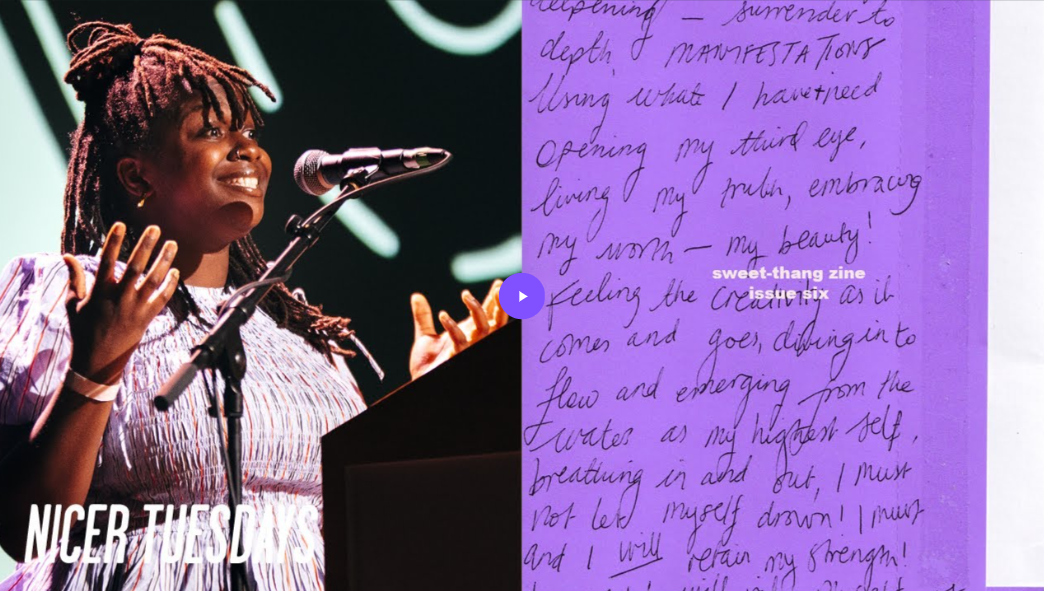 NICER TUESDAYS
deepening — surrender to
depth MANIFESTATIONS
Using what I have + need
Opening my third eye,
living my truth, embracing
my worth — my beauty!
sweet-thang zine
issue six
feeling the creativity as it
comes and goes, diving into
flow and emerging from the
water as my highest self,
breathing in and out, I must
not let myself drown! I must
and I will retain my strength!